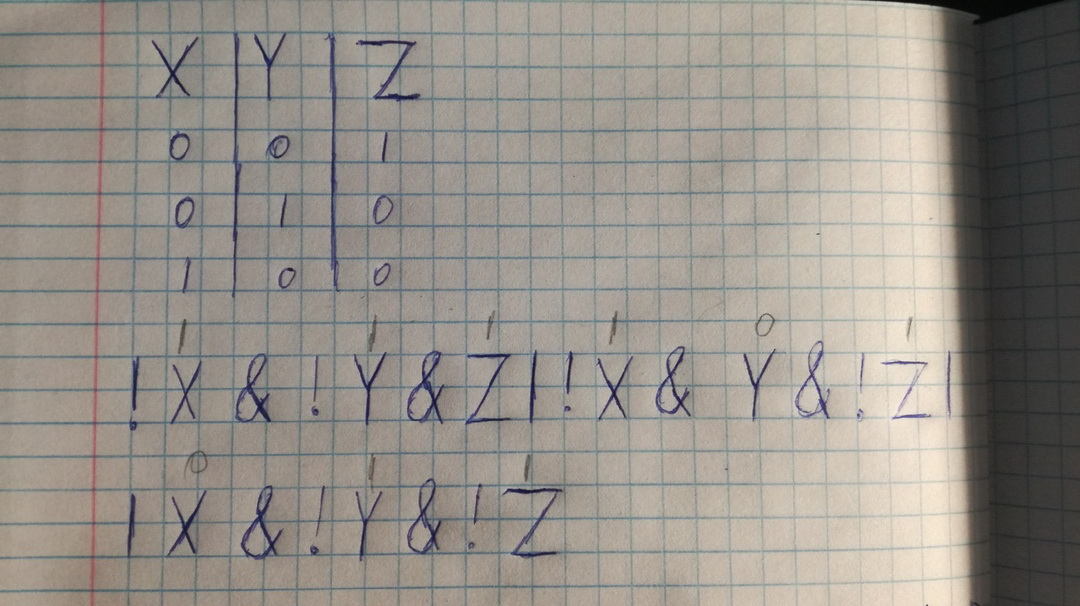 X | Y | Z
0 | 0 | 1
0 | 1 | 0
1 | 0 | 0
1 1 1 1 0 1
!X & !Y & Z | !X & Y & !Z |
0 1 1
| X & !Y & !Z